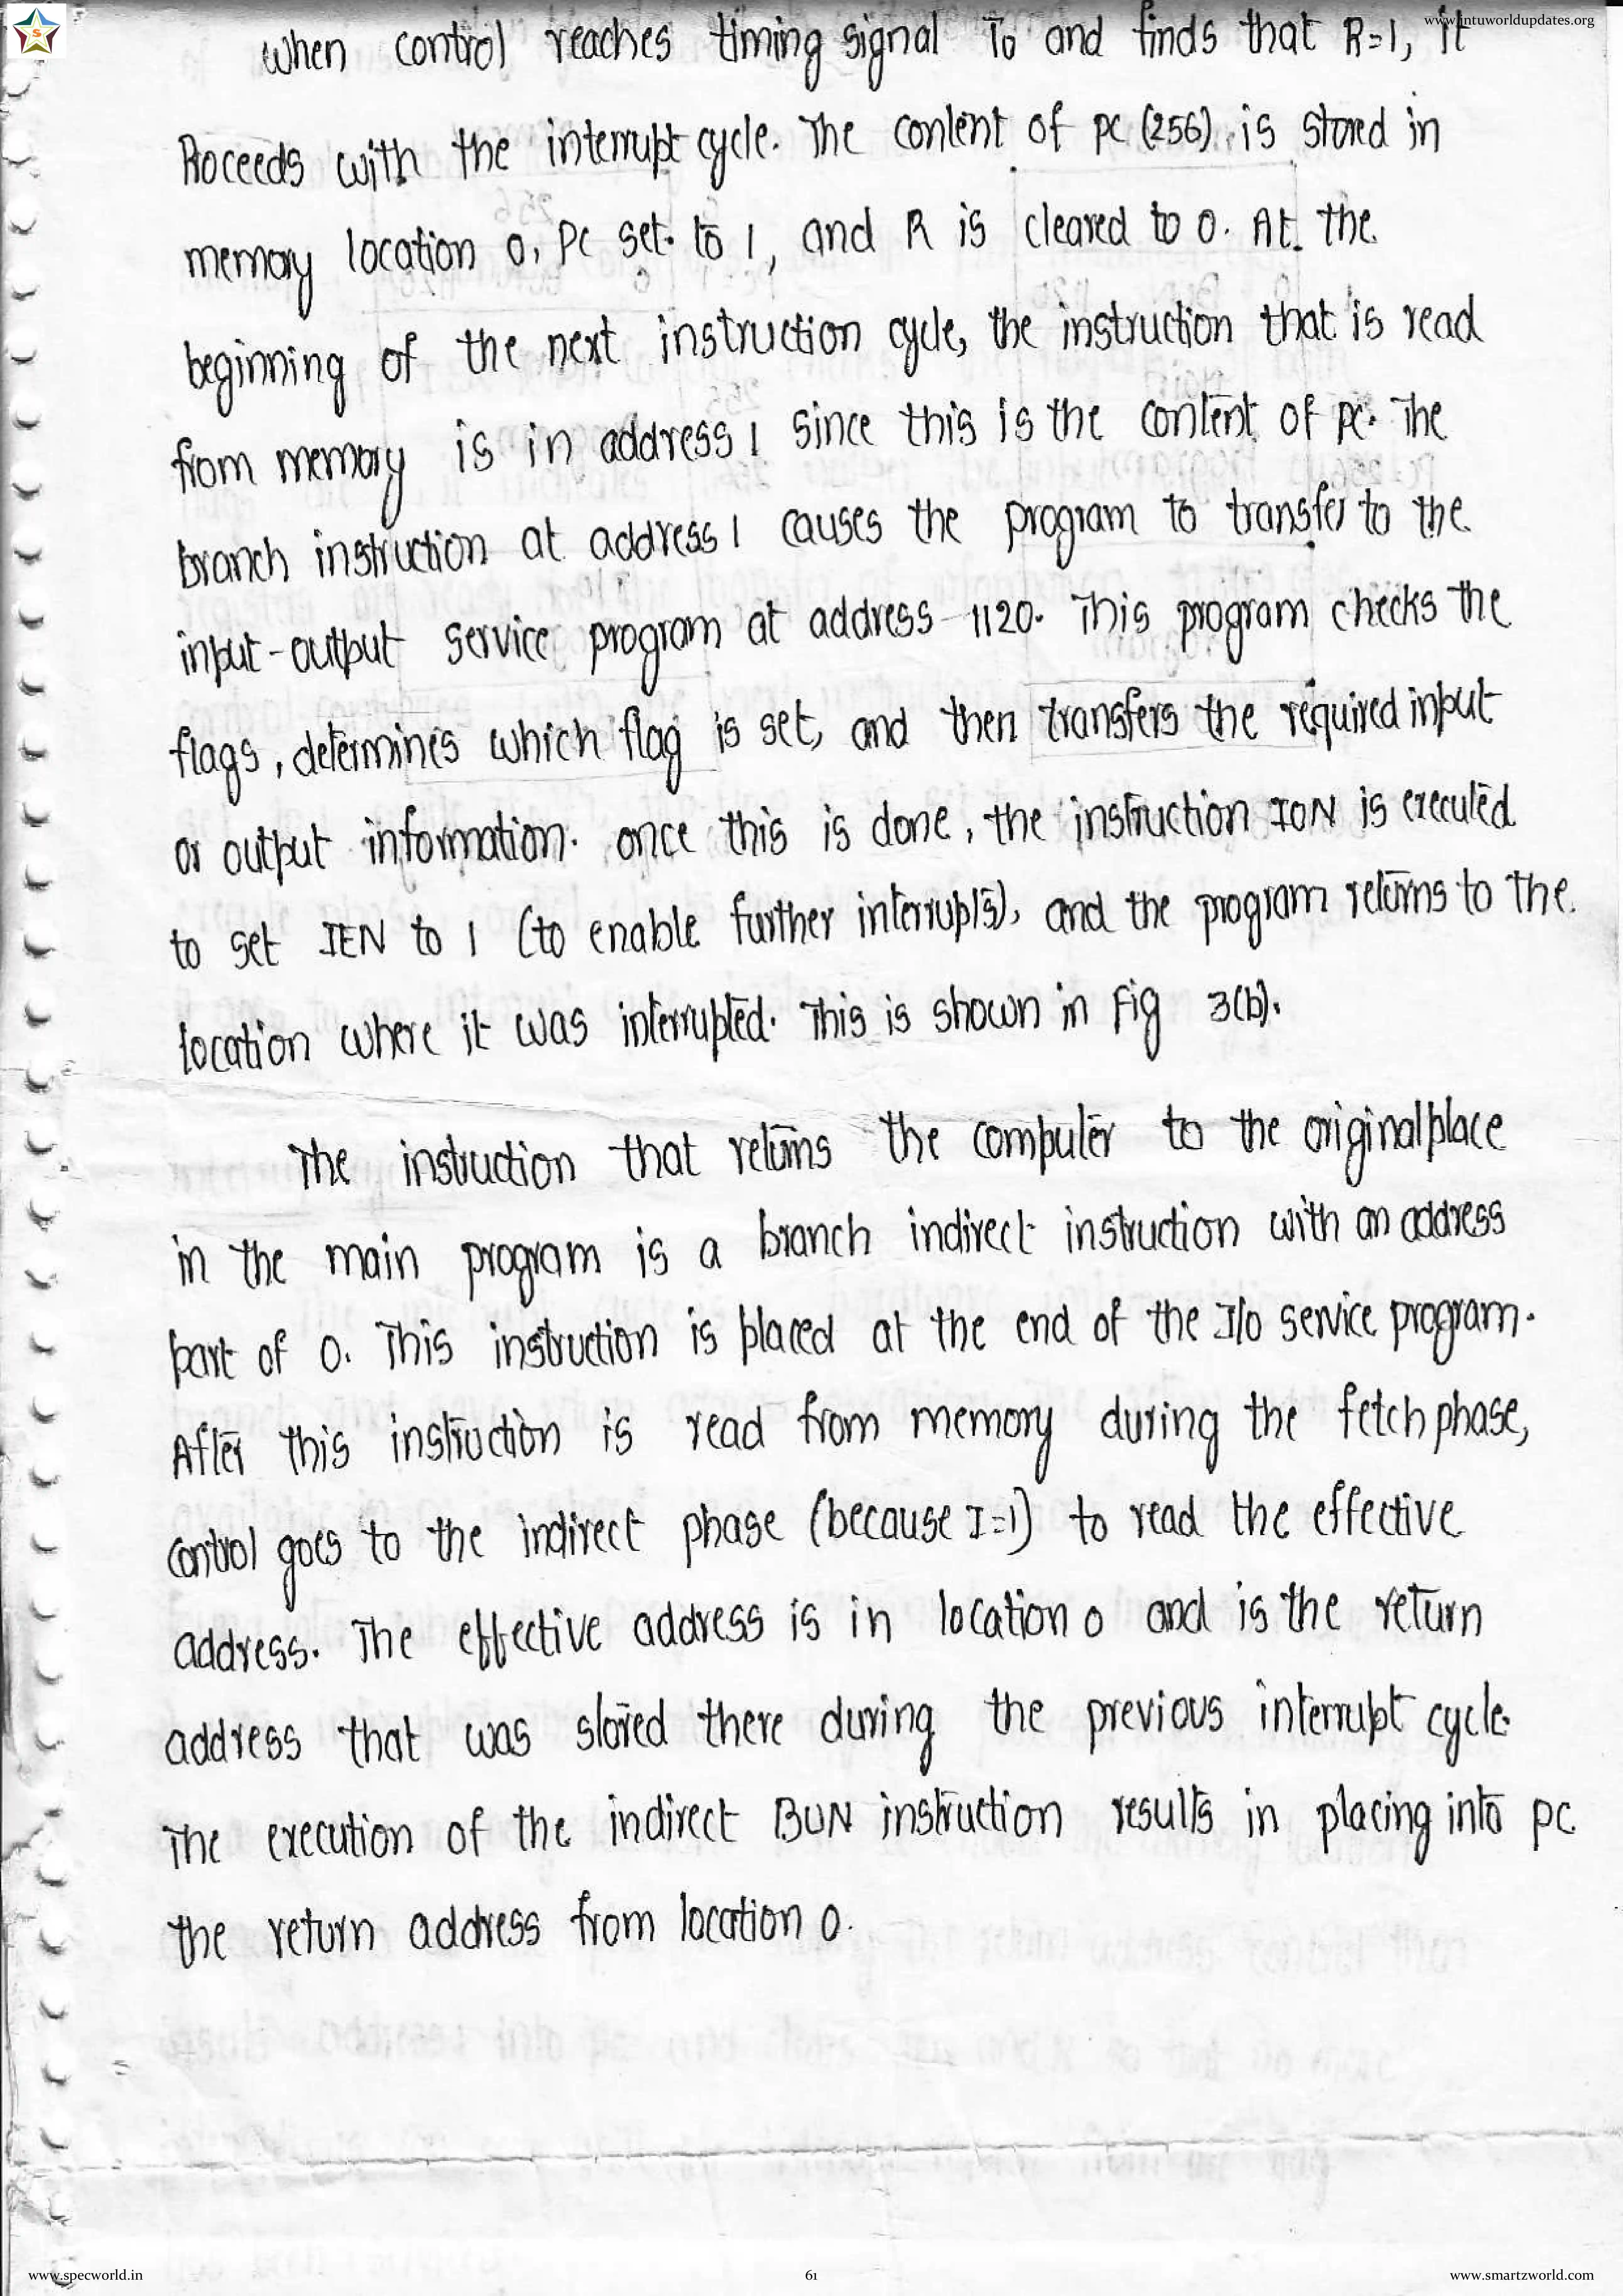 www.jntuworldupdates.org
S
When control reaches timing signal T0 and finds that R=1, it
Proceeds with the interrupt cycle. The content of PC (256) is stored in
memory location 0, PC set to 1, and R is cleared to 0. At the
beginning of the next instruction cycle, the instruction that is read
from memory is in address 1 since this is the content of PC. The
branch instruction at address 1 causes the program to transfer to the
input-output service program at address 1120. This program checks the
flags, determines which flag is set, and then transfers the required input
or output information. once this is done, the instruction ION is executed
to set IEN to 1 (to enable further interrupts), and the program returns to the
location where it was interrupted. This is shown in Fig 3(b).
The instruction that returns the computer to the original place
in the main program is a branch indirect instruction with an address
part of 0. This instruction is placed at the end of the I/O service program.
After this instruction is read from memory during the fetch phase,
control goes to the indirect phase (because I=1) to read the effective
address. The effective address is in location 0 and is the return
address that was stored there during the previous interrupt cycle.
The execution of the indirect BUN instruction results in placing into PC
the return address from location 0.
www.specworld.in
61
www.smartzworld.com